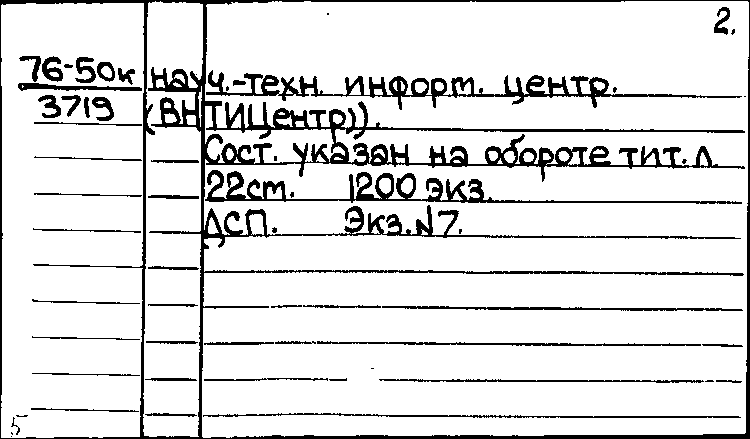 2.
76-50к науч.-техн. информ. центр.
3719 (ВНТИЦентр)).
Сост. указан на обороте тит. л.
22ст. 1200 экз.
ДСП. Экз.№7.
5